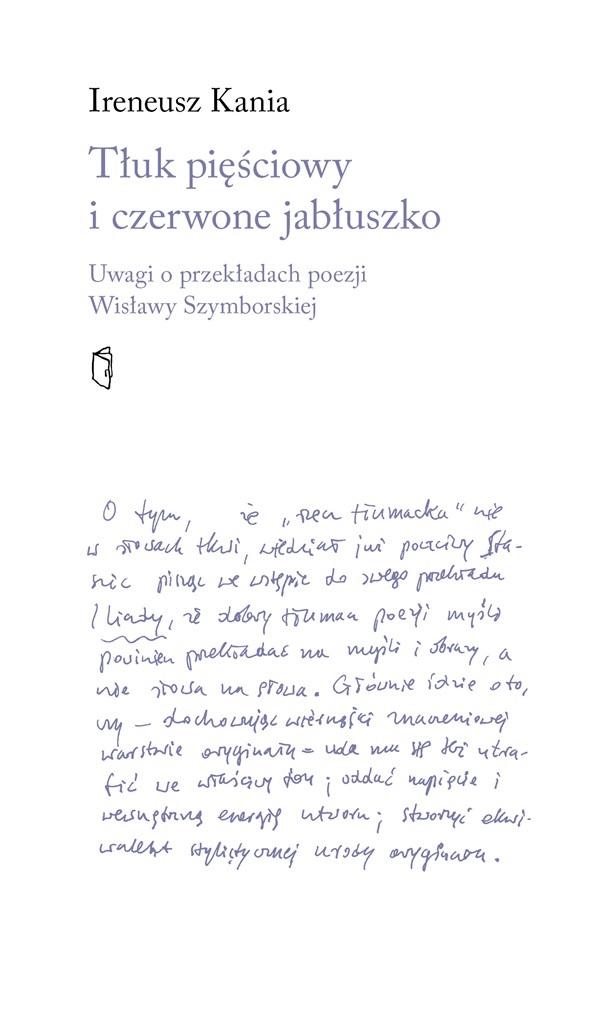 Ireneusz Kania
Tłuk pięściowy
i czerwone jabłuszko
Uwagi o przekładach poezji
Wisławy Szymborskiej
O tym, że „rzecz tłumacka“ nie
w słowach tkwi, wiedział już poczciwy Sta-
szic pisząc we wstępie do swego przekładu
Iliady, że dobry tłumacz poezji myśli
powinien przekładać na myśli i obrazy, a
nie słowa na słowa. Głównie idzie o to,
czy – dochowując wierności znaczeniowej
warstwie oryginału – uda mu się też utra-
fić we właściwy ton; oddać napięcie i
wewnętrzną energię utworu; stworzyć ekwi-
walent stylistycznej urody oryginału.